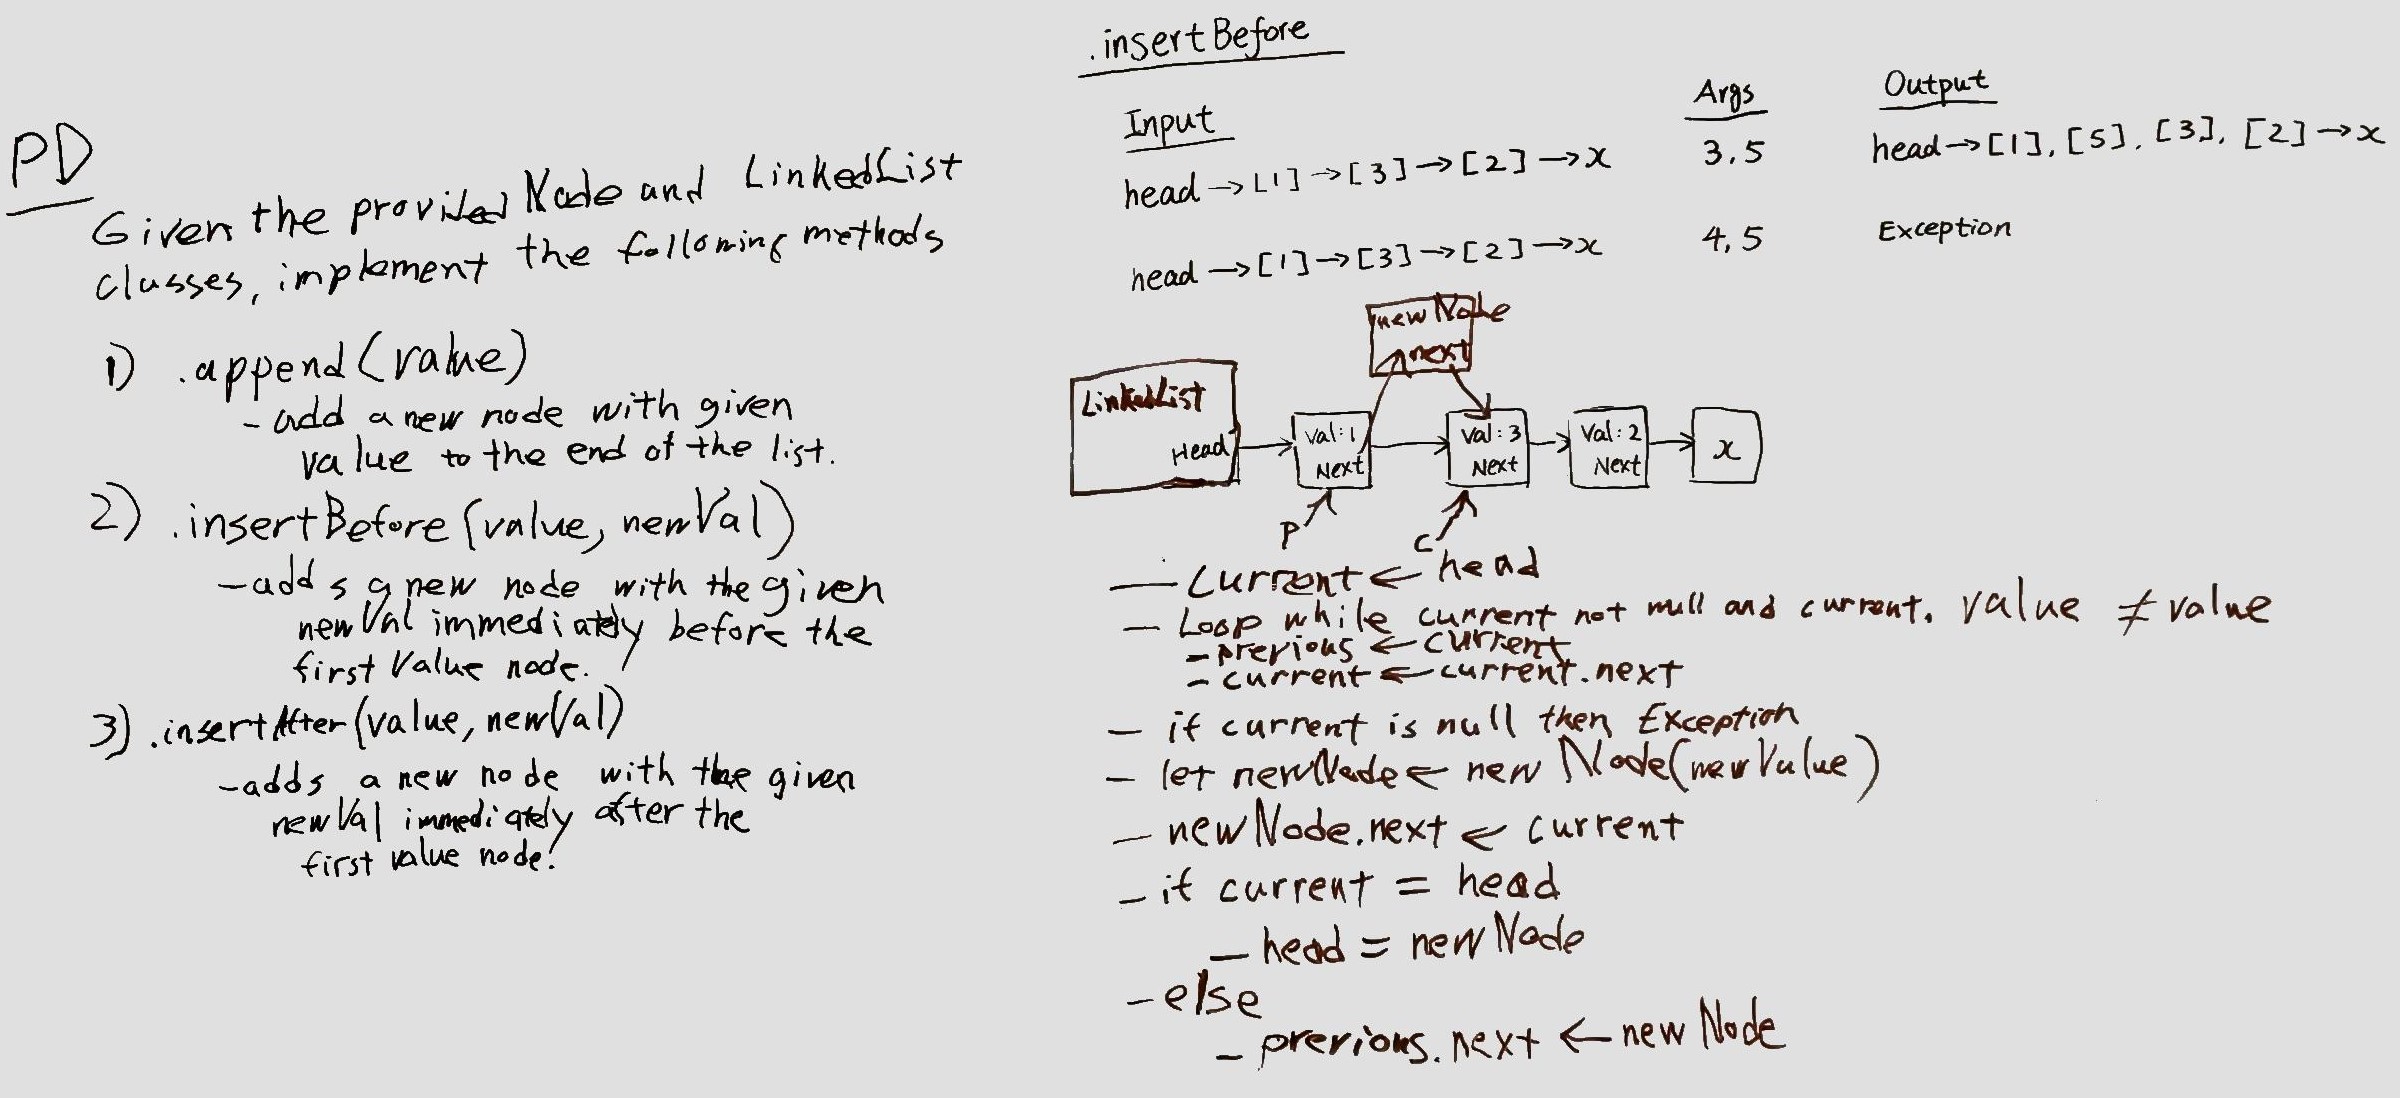 PD
Given the provided Node and LinkedList
classes, implement the following methods
1) .append(value)
- add a new node with given
value to the end of the list.
2) .insertBefore(value, newVal)
- adds a new node with the given
newVal immediately before the
first value node.
3) .insertAfter(value, newVal)
- adds a new node with the given
newVal immediately after the
first value node.
.insertBefore
Input Args Output
head → [1] → [3] → [2] → x 3,5 head → [1], [5], [3], [2] → x
head → [1] → [3] → [2] → x 4,5 Exception
newNode
next
LinkedList
Head
Val:1
Next
Val:3
Next
Val:2
Next
x
P
C
- Current ← head
- Loop while current not null and current.value ≠ value
- previous ← current
- current ← current.next
- if current is null then Exception
- let newNode ← new Node(newValue)
- newNode.next ← current
- if current = head
- head = newNode
- else
- previous.next ← newNode